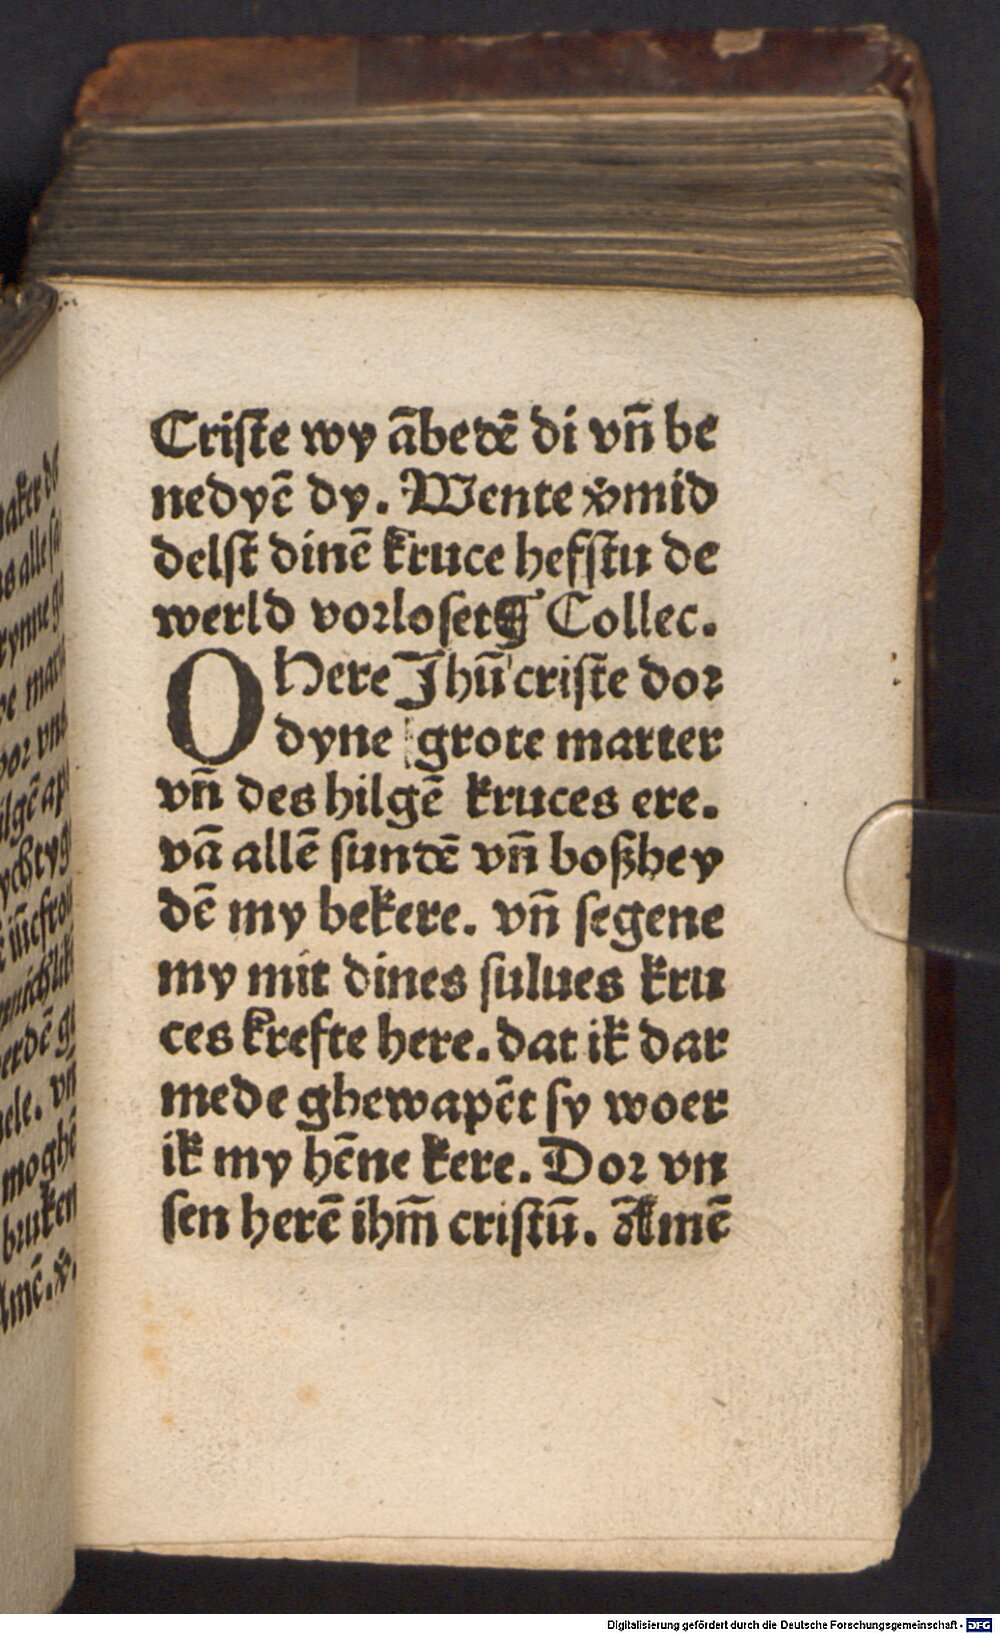 Criste wy ābedē di vn̄ be
nedyē dy. Wente v̾mid
delst dinē kruce hefstu de
werld vorloset¶ Collec.
O Here Jhū criste dor
dyne grote marter
vn̄ des hilgē kruces ere.
vā allē sundē vn̄ boßhey
dē my bekere. vn̄ segene
my mit dines sulues kru
ces krefte here. dat ik dar
mede ghewapēt sy woer
ik my hēne kere. Dor vn
sen herē ihm̄ cristū. Amē
Digitalisierung gefördert durch die Deutsche Forschungsgemeinschaft - DFG